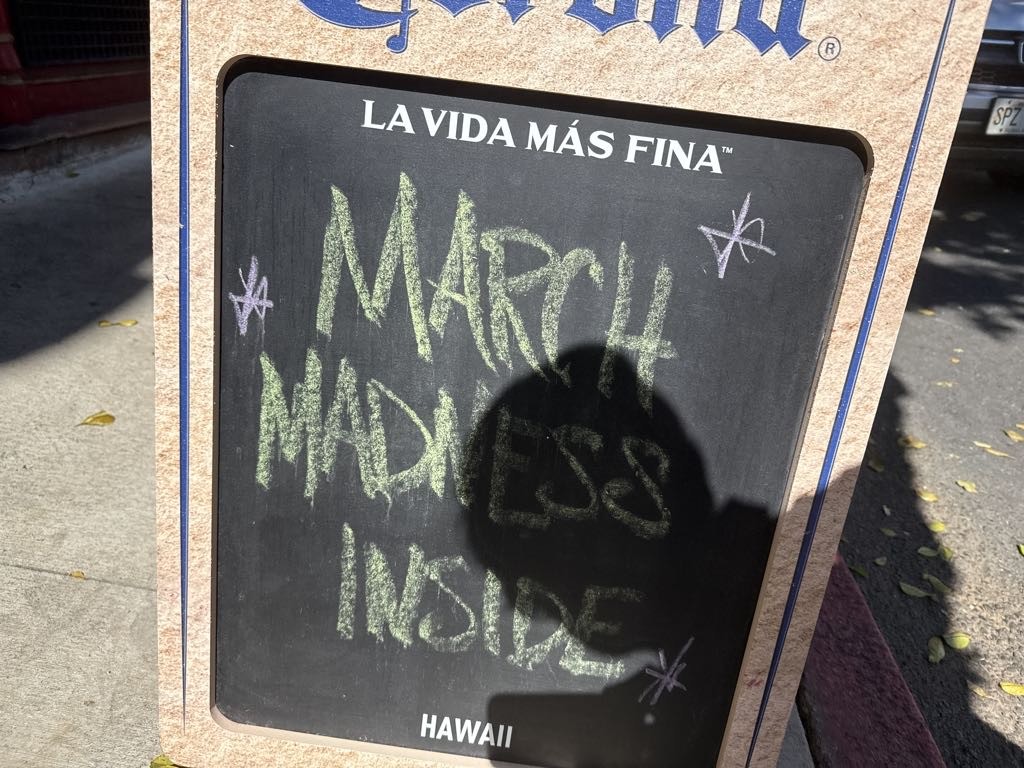 Corona®
LA VIDA MÁS FINA™
MARCH
MADNESS
INSIDE
HAWAII
SPZ